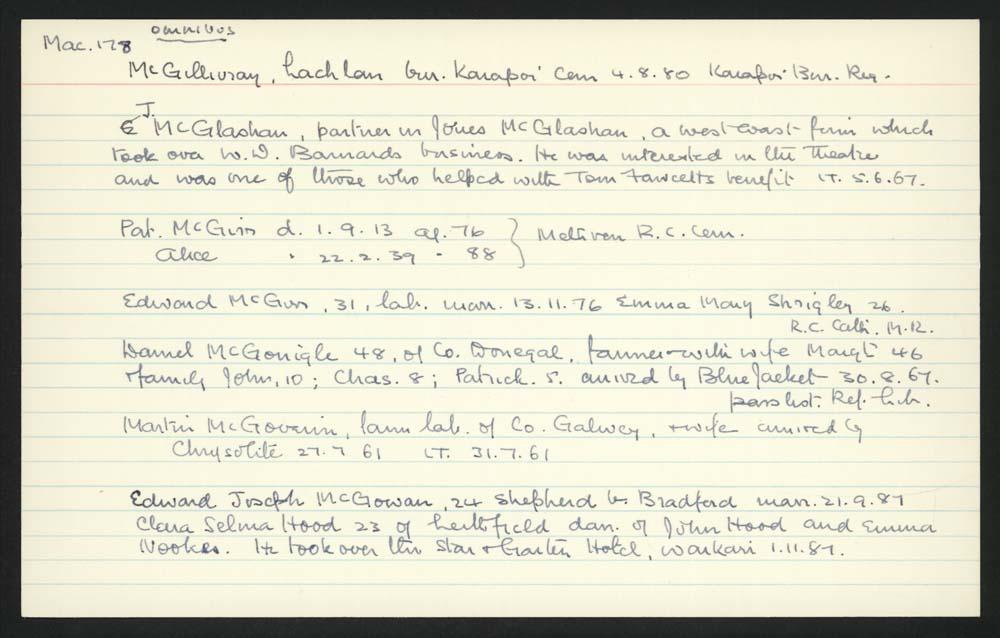 omnibus
Mac. 178
McGillivray, Lachlan bur. Kaiapoi Cem 4.8.80 Kaiapoi Bur. Reg.
J.
McGlashan, partner in Jones McGlashan, a west-coast firm which
took over W.D. Barnards business. He was interested in the theatre
and was one of those who helped with Tom Fawcetts benefit LT. 5.6.67.
Pat. McGirr d. 1.9.13 ag. 76 } Methven R.C. Cem.
Alice " 22.2.39 - 88
Edward McGirr, 31, lab. marr. 13.11.76 Emma Mary Shrigley 26.
R.C. Cath. M.R.
Daniel McGonigle 48, of Co. Donegal, farmer with wife Margt 46
+ family John, 10; Chas. 8; Patrick. 5. arrived by Blue Jacket 30.8.67.
pass list. Ref. Lib.
Martin McGoverin, farm lab. of Co. Galway, + wife arrived by
Chrysolite 27.7 61 LT. 31.7.61
Edward Joseph McGowan, 24 shepherd b. Bradford marr. 21.9.87
Clara Selma Hood 23 of Heathfield dau. of John Hood and Emma
He took over the Star + Garter Hotel, Waikari 1.11.87.